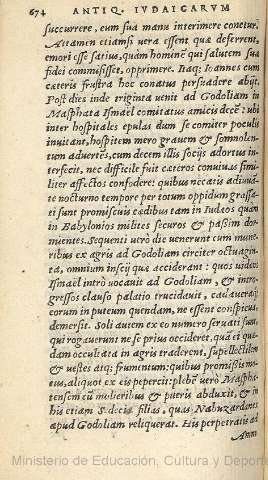 674 ANTIQ. IVDAICARVM
succurrere, eum sua manu interimere conetur.
Attamen etiamsi vera essent quæ deferrent,
emori esse satius, quàm hominẽ qui salutem suæ
fidei commisisset, opprimere. Itaq; Ioannes cum
cæteris frustra hoc conatus persuadere abijt.
Post dies inde triginta venit ad Godoliam in
Masphata Ismaël comitatus amicis decẽ: vbi
inter hospitales epulas dum se comiter poculis
inuitant, hospitem mero grauem & somnolen-
tum aduertẽs, cum decem illis socijs adortus in-
terfecit, nec difficile fuit cæteros conuiuas simi-
liter affectos confodere: quibus necatis adiuuã-
te nocturno tempore per totum oppidum grassa-
ti sunt promiscuis cædibus tam in Iudæos quàm
in Babylonios milites securos & passim dor-
mientes. Sequenti verò die venerunt cum mune-
ribus ex agris ad Godoliam circiter octuagin-
ta, omnium inscij quæ acciderant: quos vidẽs
Ismaël intrò vocauit ad Godoliam, & intro-
gressos clauso palatio trucidauit, cadaueraq́;
eorum in puteum quendam, ne essent conspicua,
demersit. Soli autem ex eo numero seruati sunt,
qui rogauerunt ne se prius occideret, quã ei quæ-
dam occultata in agris traderent, supellectilem
& vestes atq; frumentum: quibus promissis mo-
tus, aliquot ex eis pepercit: plebẽ verò Mespha-
tensem cũ mulieribus & pueris abduxit, & in
his etiam Sedeciæ filias, quas Nabuzardanes
apud Godoliam reliquerat. His perpetratis ad
Amm
Ministerio de Educación, Cultura y Deporte